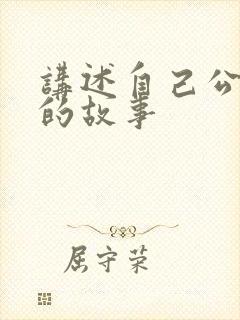 講述自己公
的故事
屈守荣